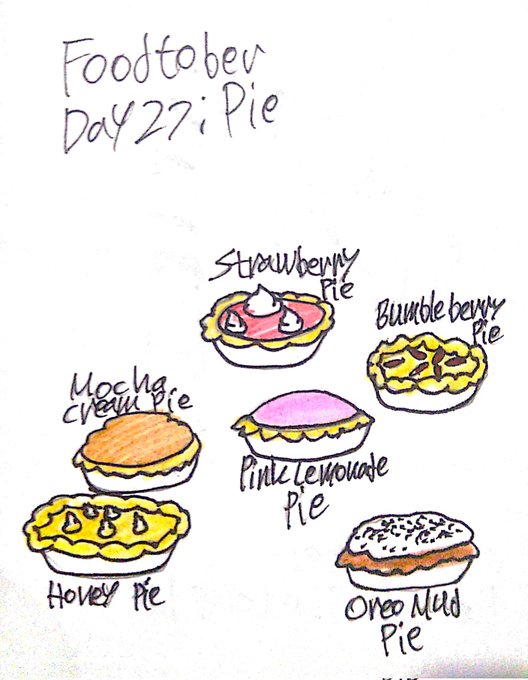 Foodtober
Day 27; Pie
Strawberry
Pie
Bumbleberry
Pie
Mocha
cream Pie
Pink Lemonade
Pie
Honey Pie
Oreo Mud
Pie